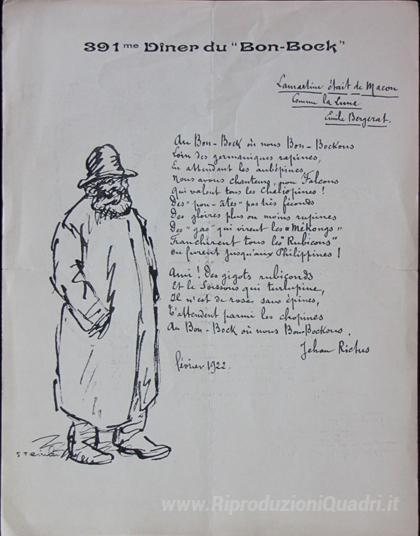 391me Dîner du "Bon-Bock"
Lamartine était de Macon
Comme la Lune
Emile Bergerat.
Au Bon-Bock où nous Bon-Bockons
Loin des germaniques rapines,
En attendant les aubépines,
Nous avons chanteurs pour Falcons
Qui valent tous les Chaliapines !
Des pas très féconds
Des gloires plus ou moins rupines
Des "gas" qui virent les "Mékongs"
Franchirent tous les "Rubicons"
Ou furent jusqu'aux Philippines !
Ami ! Des gigots rubiconds
Et le Soissons qui turlupine,
Il n'est de roses sans épines,
T'attendent parmi les chopines
Au Bon-Bock où nous Bon-Bockons.
Jehan Rictus
février 1922.
www.RiproduzioniQuadri.it